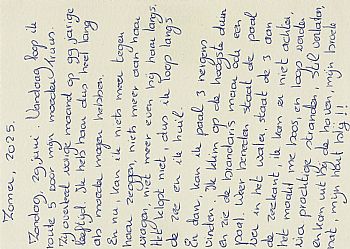 Zomer, 2025.
Zondag, 29 juni. Vandaag loop ik
route 5 voor mijn moeder Truus.
Zij overleed vorige maand op 99 jarige
leeftijd. Ik heb haar dus heel lang
als moeder mogen hebben.
En nu, kan ik niets meer tegen
haar zeggen, niets meer aan haar
vragen, niet meer even bij haar langs.
Het klopt niet, dus ik loop langs
de zee en ik huil.
En dan, kan ik paal 3 nergens
vinden. Ik klim op de hoogste duin
en zie de Brandaris maar ook een
paal. Weer beneden staat de paal
half in het water staat de 3 aan
de zeekant, ik kon er niet achter.
Het maakt me boos, en loop verder
via prachtige stranden, stil verlaten,
en kom uit bij de haven, mijn broek
nat, mijn hart blij!!